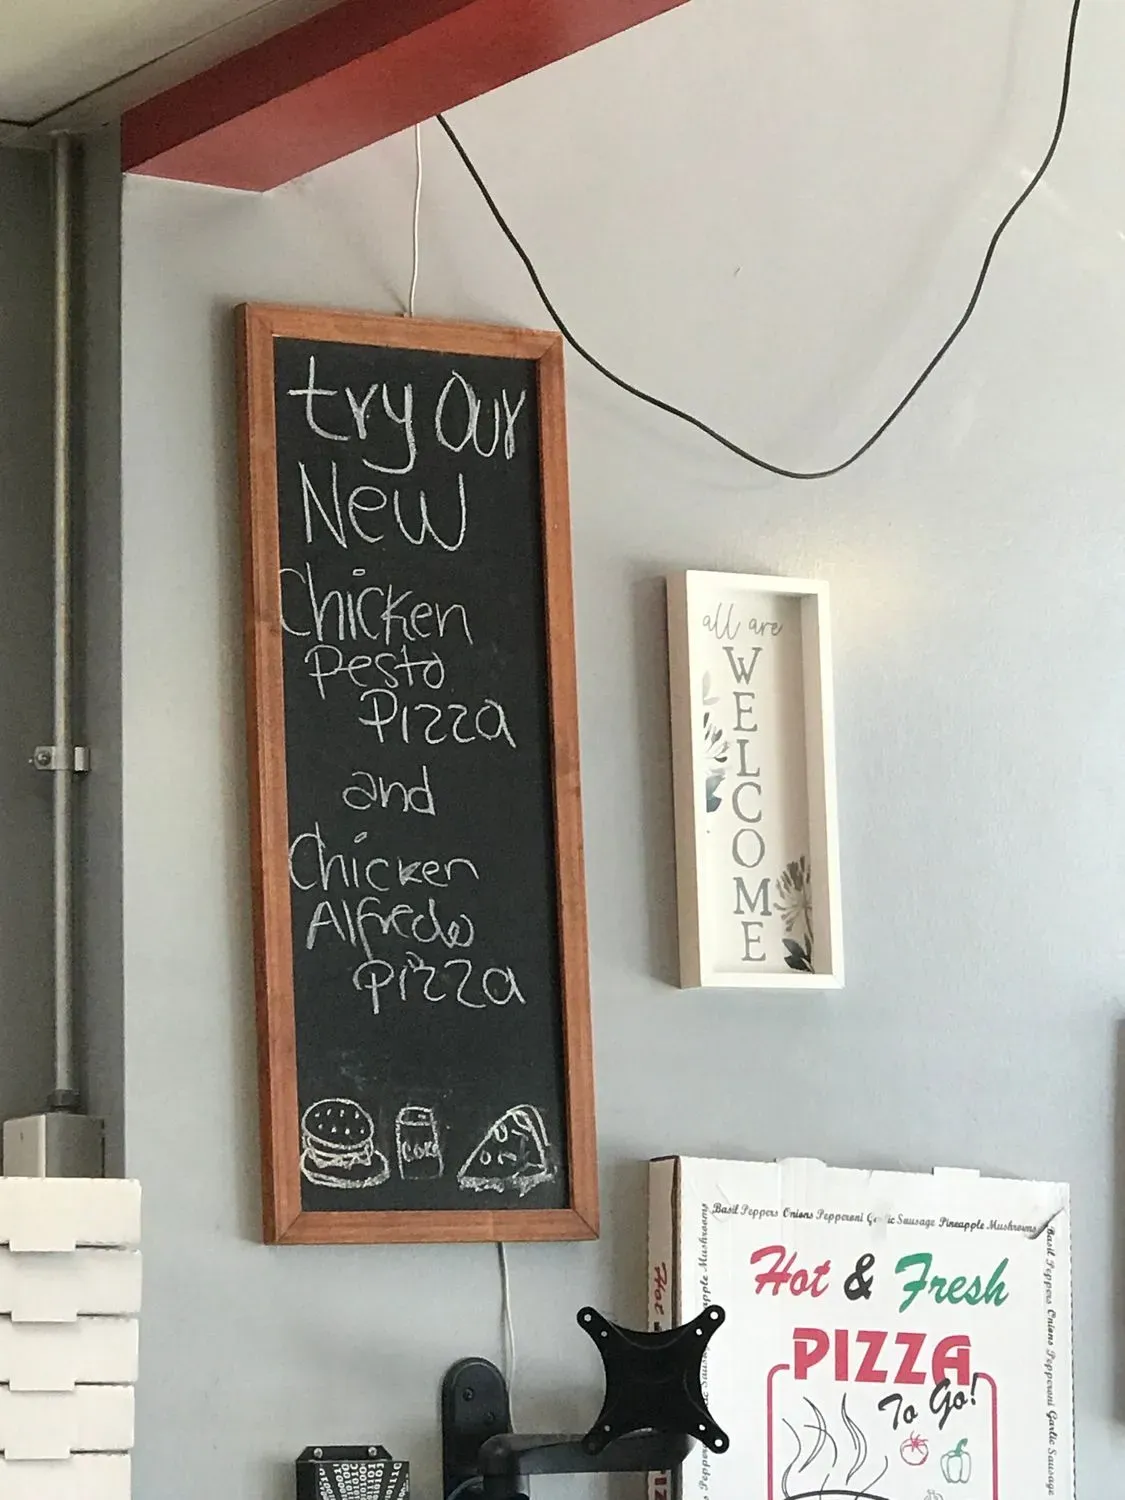 try Our
New
Chicken
Pesto
Pizza
and
Chicken
Alfredo
pizza
COKE
all are
WELCOME
Basil Peppers Onions Pepperoni Garlic Sausage Pineapple Mushrooms
Hot & Fresh
PIZZA
To Go!
Basil Peppers Onions Pepperoni Garlic Sausage